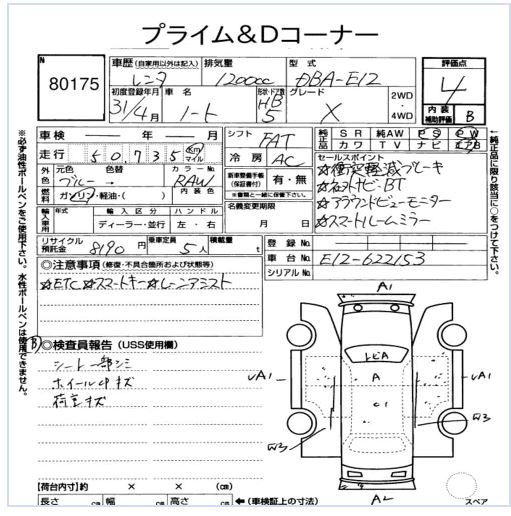 プライム&Dコーナー
No
80175
車歴 (自家用以外は記入)
レンタ
排気量
1200cc
型式
DBA-E12
評価点
4
初度登録年月
31/4月
車名
ノート
形状・ドア数
HB
5
グレード
X
2WD・4WD
内装補助評価
B
車検 年 月
シフト
FAT
純正品 SR 純AW PS PW
純正品 カワ TV ナビ エアB
走行 50,735 km マイル
冷房 AC
セールスポイント
☆衝突軽減ブレーキ
外色 元色 色替
ブルー→
カラーNo
RAW
内装色
新車整備手帳(保証書付) 有・無
※書類と一緒に保管ください。
☆ナビBT
燃料 ガソリン・軽油・( )
☆アラウンドビューモニター
輸入車用 年式 輸入区分 ハンドル
ディーラー・並行 左・右
名義変更期限
月 日
☆スマートルームミラー
リサイクル預託金 8190円
乗車定員 5人
積載量 t
登録No
◎注意事項 (修復・不具合箇所および状態等)
車台No E12-622153
シリアルNo
☆ETC ☆スマートキー ☆レーンアシスト
B ◎検査員報告 (USS使用欄)
シート一部シミ
ホイール中キズ
荷室キズ
A1
トビA
A
C1
UA1
UA1
W3
W3
A2
スペア
【荷台内寸】約 × × (cm)
長さ cm 幅 cm 高さ cm ←(車検証上の寸法)
※必ず油性ボールペンをご使用下さい。水性ボールペンは使用できません。
←純正品に限り該当に○をつけて下さい。